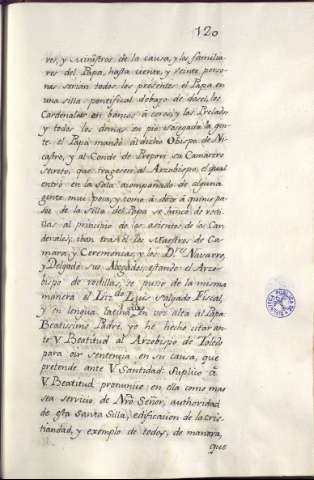 120
res, y Ministros de la causa, y los familia-
res del Papa, hasta ciento, y veinte perso-
nas serian todos los presentes: el Papa en
una silla pontifical debajo de dosel, los
Cardenales en bancos á coros, y los Prelados
y todos los demas en pie. Sosegada la gen-
te el Papa mandó al dicho Obispo de Ni-
castro, y al Conde de su Camarero
Secreto, que tragesen al Arzobispo, el qual
entró en la Sala acompañado de alguna
gente muy poca, y como á diez ó quince pa-
sos de la silla del Papa se hincó de rodi-
llas al principio de los asientos de los Car-
denales; iban tras él los Maestros de Ca-
mara, y Ceremonias, y los D.res Navarro,
y Delgado sus Abogados; estando el Arzo-
bispo de rodillas, se puso de la misma
manera el Liz.do Luis Salgado Fiscal,
y en lengua latina en voz alta al Papa:
Beatisimo Padre, yo he hecho citar an-
te V. Beatitud al Arzobispo de Toledo
para oir sentencia en su causa, que
pretende ante V. Santidad: Suplico á
V. Beatitud pronuncie en ella como mas
sea servicio de Nro Señor, authoridad
de esta Santa Silla, edificacion de la Cris-
tiandad, y exemplo de todos, de manera,
que